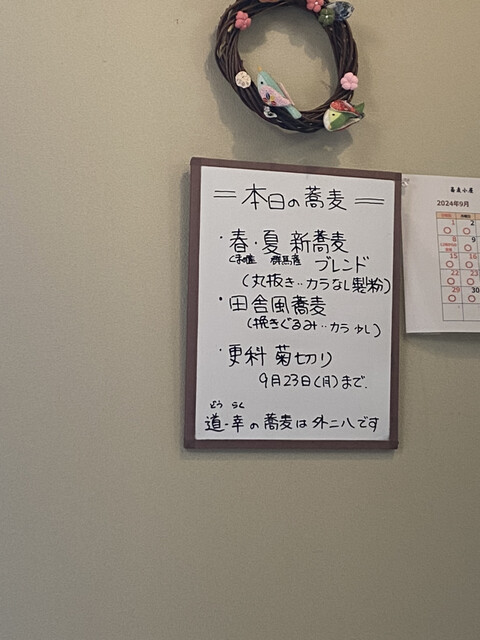 ＝本日の蕎麦＝
・春・夏 新蕎麦
群馬産 ブレンド
(丸抜き‥カラなし製粉)
・田舎風蕎麦
(挽きぐるみ‥カラ少し)
・更科 菊切り
9月23日(月)まで.
どう らく
道・幸の蕎麦は外二八です
2024年9月
1 2
8 9
15 16
22 23
29 30